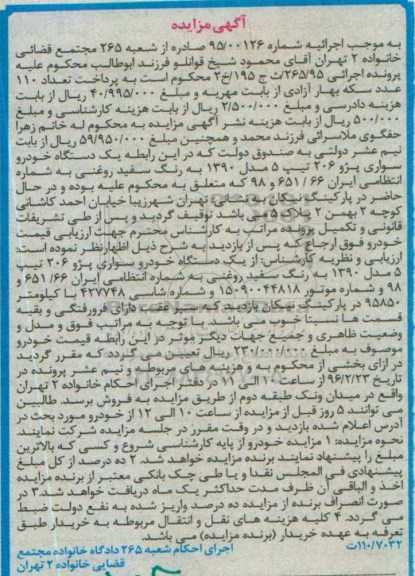 آگهی مزایده
به موجب اجرائیه شماره ۹۵/۰۰۱۲۶ صادره از شعبه ۲۶۵ مجتمع قضائی
خانواده ۲ تهران آقای محمود شیخ قوانلو فرزند ابوطالب محکوم علیه
پرونده اجرائی ۲۶۵/۹۵/ث ج ۱۹۵/ح۳ محکوم است به پرداخت تعداد ۱۱۰
عدد سکه بهار آزادی از بابت مهریه و مبلغ ۴۰/۹۹۵/۰۰۰ ریال از بابت
هزینه دادرسی و مبلغ ۲/۵۰۰/۰۰۰ ریال از بابت هزینه کارشناسی و مبلغ
۵۰۰/۰۰۰ ریال از بابت هزینه نشر آگهی مزایده به محکوم له خانم زهرا
حقگوی ملاسرائی فرزند محمد و همچنین مبلغ ۵۹/۹۵۰/۰۰۰ ریال از بابت
نیم عشر دولتی به صندوق دولت که در این رابطه یک دستگاه خودرو
سواری پژو ۲۰۶ تیپ ۵ مدل ۱۳۹۰ به رنگ سفید روغنی به شماره
انتظامی ایران ۶۶ / ۶۵۱ و ۹۸ که متعلق به محکوم علیه بوده و در حال
حاضر در پارکینگ نیکان به نشانی تهران شهرزیبا خیابان احمد کاشانی
کوچه ۲ بهمن ۲ پلاک ۵ می باشد توقیف گردید و پس از طی تشریفات
قانونی و تکمیل پرونده مراتب به کارشناس محترم جهت ارزیابی قیمت
خودرو فوق ارجاع که پس از بازدید به شرح ذیل اظهارنظر نموده است:
ارزیابی و نظریه کارشناس: از یک دستگاه خودرو سواری پژو ۲۰۶ تیپ
۵ مدل ۱۳۹۰ به رنگ سفید روغنی به شماره انتظامی ایران ۶۶/ ۶۵۱ و
۹۸ و شماره موتور ۱۵۰۹۰۰۴۴۸۱۸ و شماره شاسی ۴۲۷۷۴۸ با کیلومتر
۹۵۸۵۰ در پارکینگ نیکان بازدید که سپر عقب دارای فرورفتگی و بقیه
قسمت ها نسبتا خوب می باشد. با توجه به مراتب فوق و مدل و
وضعیت ظاهری و جمیع جهات دیگر موثر در این رابطه قیمت خودرو
موصوف به مبلغ ۲۳۰/۰۰۰/۰۰۰ ریال تعیین می گردد که مقرر گردید
در ازای بخشی از محکوم به و هزینه های مربوطه و نیم عشر پرونده در
تاریخ ۹۶/۲/۲۳ از ساعت ۱۰ الی ۱۱ در دفتر اجرای احکام خانواده ۲ تهران
واقع در میدان ونک طبقه دوم از طریق مزایده به فروش برسد. طالبین
می توانند ۵ روز قبل از مزایده از ساعت ۱۰ الی ۱۲ از خودرو مورد بحث در
آدرس اعلام شده بازدید و در وقت مقرر در جلسه مزایده شرکت نمایند.
نحوه مزایده: ۱ مزایده خودرو از پایه کارشناسی شروع و کسی که بالاترین
مبلغ را پیشنهاد نمایند برنده مزایده خواهد شد. ۲ ده درصد از کل مبلغ
پیشنهادی فی المجلس نقدا و یا طی چک بانکی معتبر از برنده مزایده
اخذ و الباقی آن ظرف مدت حداکثر یک ماه دریافت خواهد شد. ۳ در
صورت انصراف برنده از مزایده ده درصد واریز شده به نفع دولت ضبط
می گردد. ۴ کلیه هزینه های نقل و انتقال مربوطه به خریدار طبق
تعرفه به عهده خریدار (برنده مزایده) می باشد.
۱۱۰/۷۰۳۲ت اجرای احکام شعبه ۲۶۵ دادگاه خانواده مجتمع
قضایی خانواده ۲ تهران